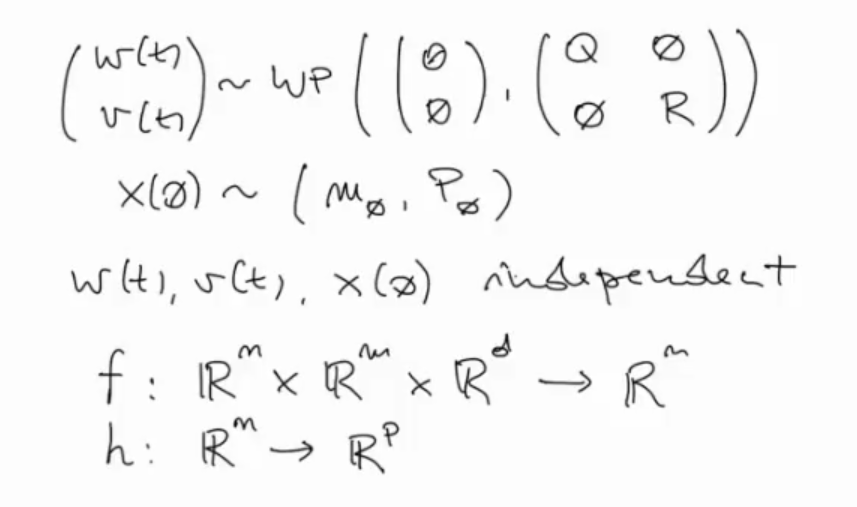 (w(t) v(t)) ~ WP ((∅ ∅), (Q ∅ ∅ R))
x(∅) ~ (m∅, P∅)
w(t), v(t), x(∅) independent
f: ℝⁿ × ℝᵐ × ℝᵈ → ℝⁿ
h: ℝⁿ → ℝᵖ